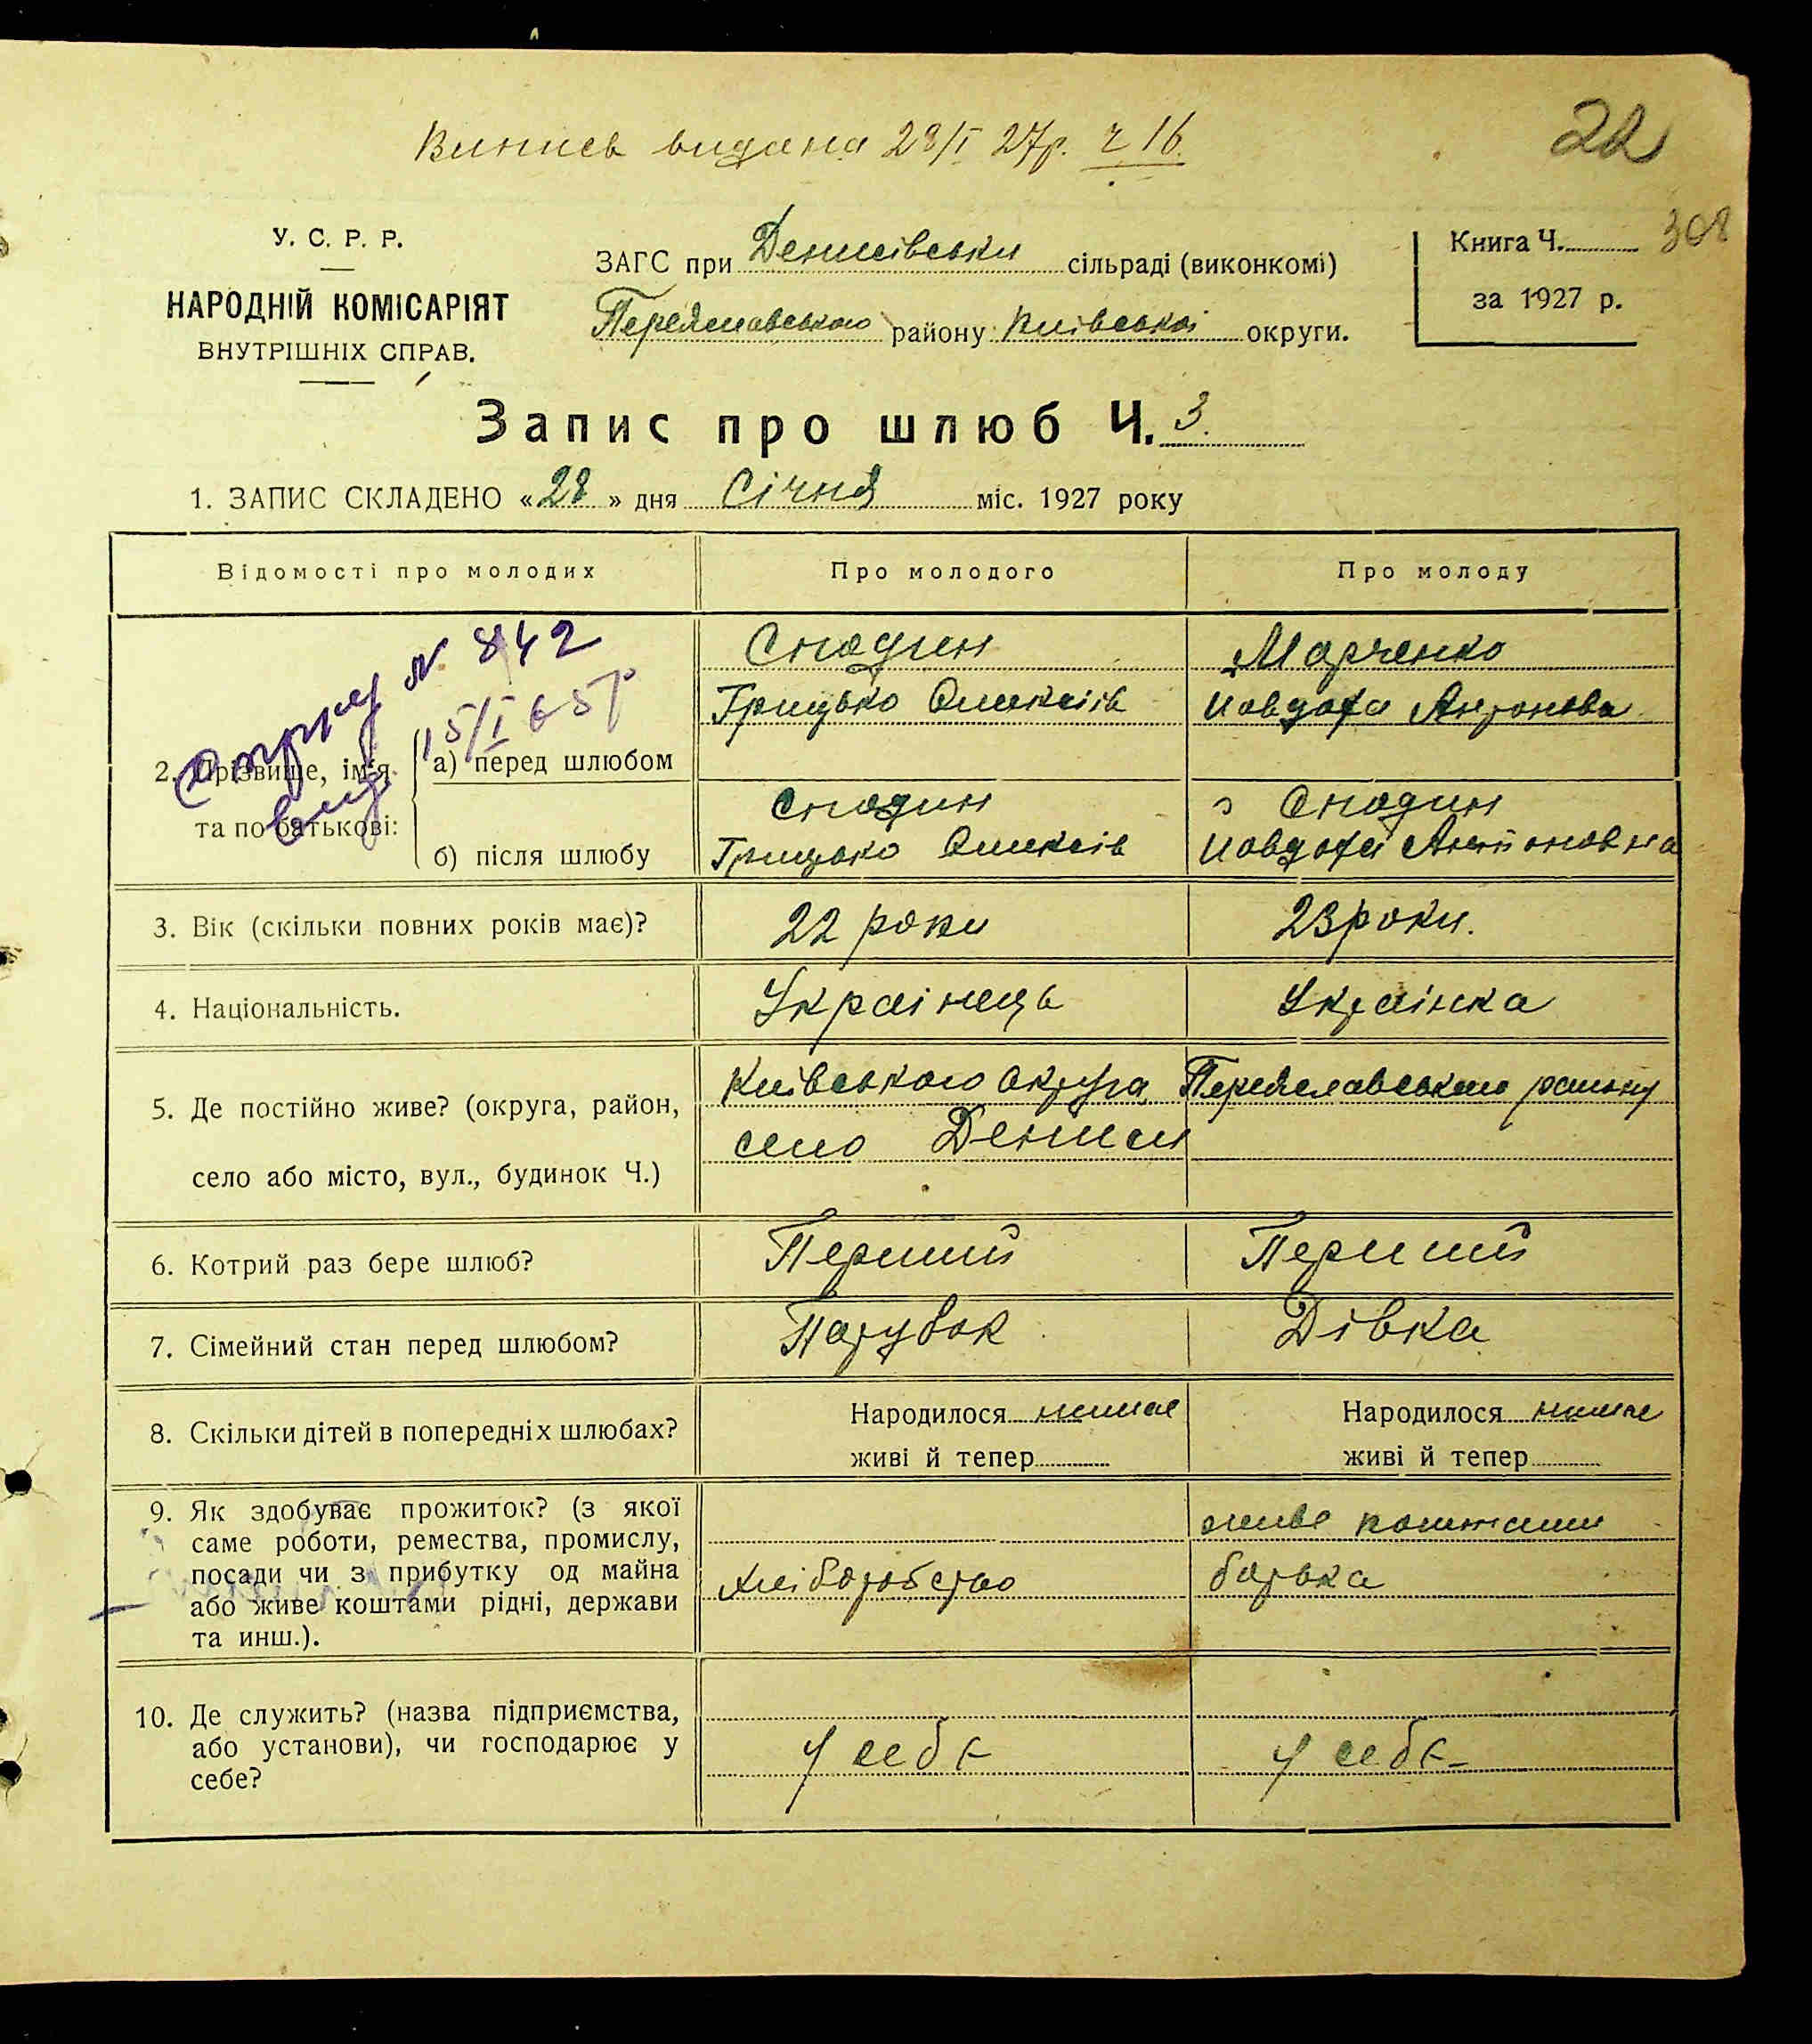 Випись видана 28/I 27р. ч 16.
22
У. С. Р. Р.
НАРОДНІЙ КОМІСАРІЯТ
ВНУТРІШНІХ СПРАВ.
ЗАГС при Дениській сільраді (виконкомі)
Переяславського району Київської округи.
Книга Ч. 308
за 1927 р.
Запис про шлюб Ч. 3.
1. ЗАПИС СКЛАДЕНО «28» дня Січня міс. 1927 року
Відомості про молодих
Про молодого
Про молоду
N 842
15/I 65р
2. Прізвище, ім'я
та по батькові:
а) перед шлюбом
Сподин
Грицько Олексіїв
Марченко
Иовдоха Антонова
б) після шлюбу
Сподин
Грицько Олексіїв
Сподин
Иовдоха Антоновна
3. Вік (скільки повних років має)?
22 роки
23 роки.
4. Національність.
Українець
Українка
5. Де постійно живе? (округа, район,
село або місто, вул., будинок Ч.)
Київського округа Переяславського району
село Дениси
6. Котрий раз бере шлюб?
Перший
Перший
7. Сімейний стан перед шлюбом?
Парубок
Дівка
8. Скільки дітей в попередніх шлюбах?
Народилося немає
живі й тепер
Народилося немає
живі й тепер
9. Як здобуває прожиток? (з якої
саме роботи, ремества, промислу,
посади чи з прибутку од майна
або живе коштами рідні, держави
та инш.).
хліборобство
живе коштами
батька
10. Де служить? (назва підприємства,
або установи), чи господарює у
себе?
У себе
У себе